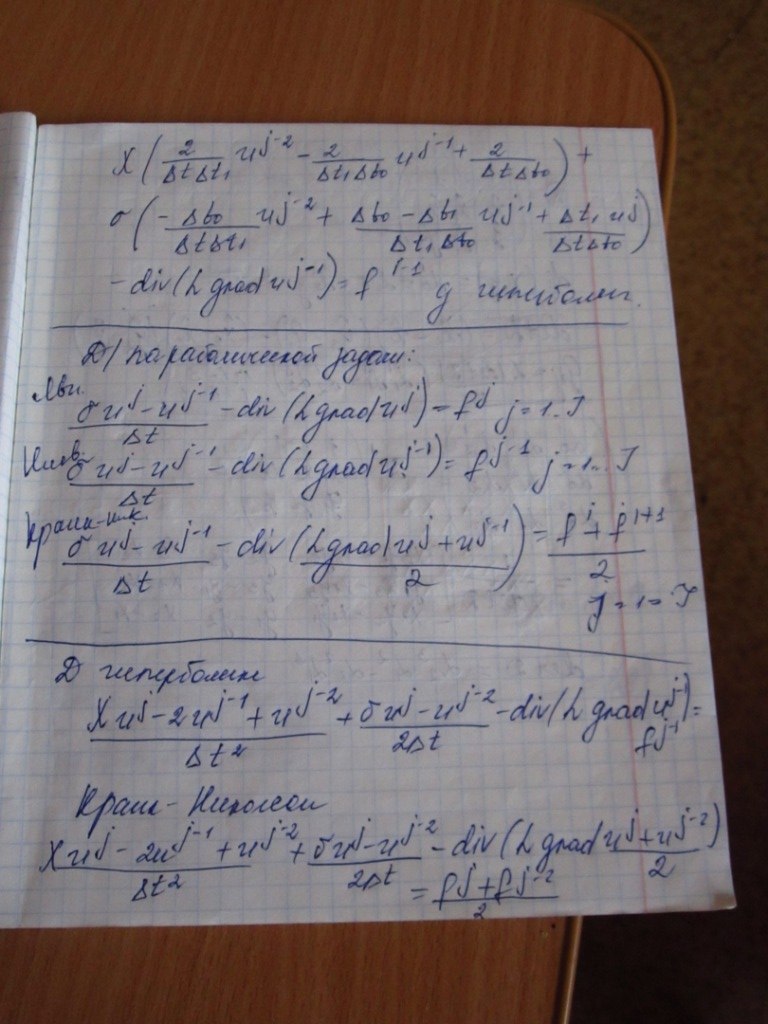 χ(2/(Δt Δt₁) u^(j-2) - 2/(Δt₁ Δt₀) u^(j-1) + 2/(Δt Δt₀)) +
σ(-Δt₀/(Δt Δt₁) u^(j-2) + (Δt₀ - Δt₁)/(Δt₁ Δt₀) u^(j-1) + Δt₁ u^j/(Δt Δt₀))
-div(λ grad u^(j-1)) = f^(j-1) д гиперболич.
Д/ параболической задачи:
Явн.
(σ u^j - u^(j-1))/Δt - div(λ grad u^j) = f^j j = 1..J
Неяв.
(σ u^j - u^(j-1))/Δt - div(λ grad u^(j-1)) = f^(j-1) j = 1... J
Кранк-ник.
(σ u^j - u^(j-1))/Δt - div((λ grad u^j + u^(j-1))/2) = (f^j + f^(j+1))/2
j = 1 = J
Д гиперболич
(χ u^j - 2u^(j-1) + u^(j-2))/Δt² + (σ u^j - u^(j-2))/(2Δt) - div(λ grad u^(j-1)) =
f^(j-1)
Кранк - Николсон
(χ u^j - 2u^(j-1) + u^(j-2))/Δt² + (σ u^j - u^(j-2))/(2Δt) - div(λ grad (u^j + u^(j-2))/2)
= (f^j + f^(j-2))/2